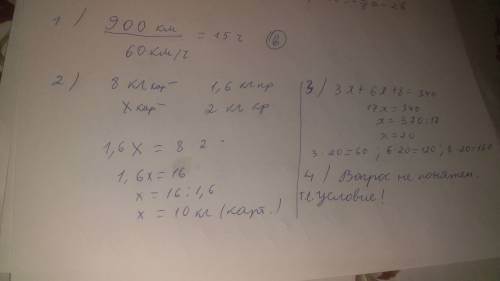 1) 900 км
60 км/ч = 15 ч (в)
2)
8 кг карт 1,6 кг кр
x карт 2 кг кр
1,6 x = 8 2
1,6x = 16
x = 16 : 1,6
x = 10 кг (карт.)
3) 3x + 6x + 8 = 340
17x = 340
x = 340 : 17
x = 20
3·20=60 ; 6·20=120 ; 8·20=160
4) Вопрос не понятен.
т.е. условие!